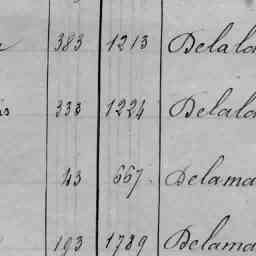 383 1213 Delalo
333 1224 Delalo
43 667 Delama
193 1789 Delama